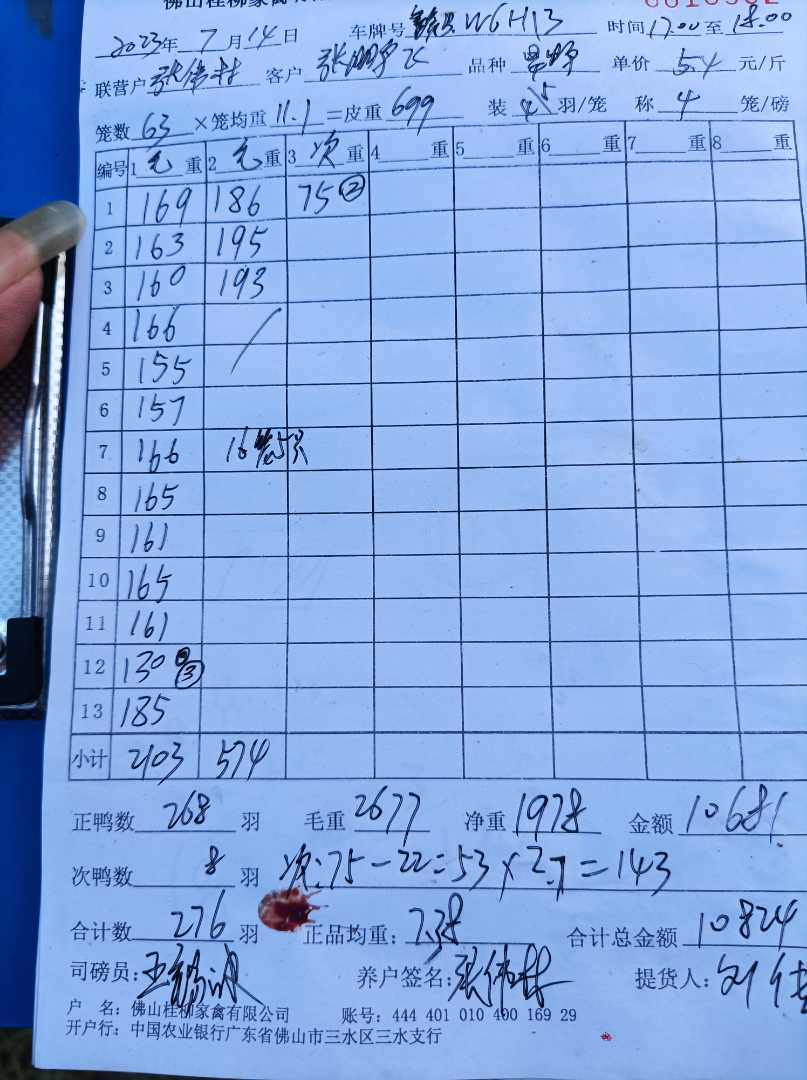 佛山桂柳家禽
2023年 7月14日 车牌号 W6H13 时间17.00至18.00
联营户 张伟林 客户 张 品种 单价 5.4 元/斤
笼数 63 ×笼均重 11.1 =皮重 699 装 5 羽/笼 称 4 笼/磅
编号 1 毛 重 2 毛 重 3 次 重 4 重 5 重 6 重 7 重 8 重
1 169 186 75②
2 163 195
3 160 193
4 166
5 155
6 157
7 166 16笼5只
8 165
9 161
10 165
11 161
12 130 ③
13 185
小计 2103 574
正鸭数 268 羽 毛重 2677 净重 1978 金额 10681.
次鸭数 8 羽 次:75-22=53×2.7=143
合计数 276 羽 正品均重: 7.38 合计总金额 10824
司磅员: 王 养户签名: 张伟林 提货人: 刘
户 名: 佛山桂柳家禽有限公司 账号: 444 401 010 400 169 29
开户行: 中国农业银行广东省佛山市三水区三水支行